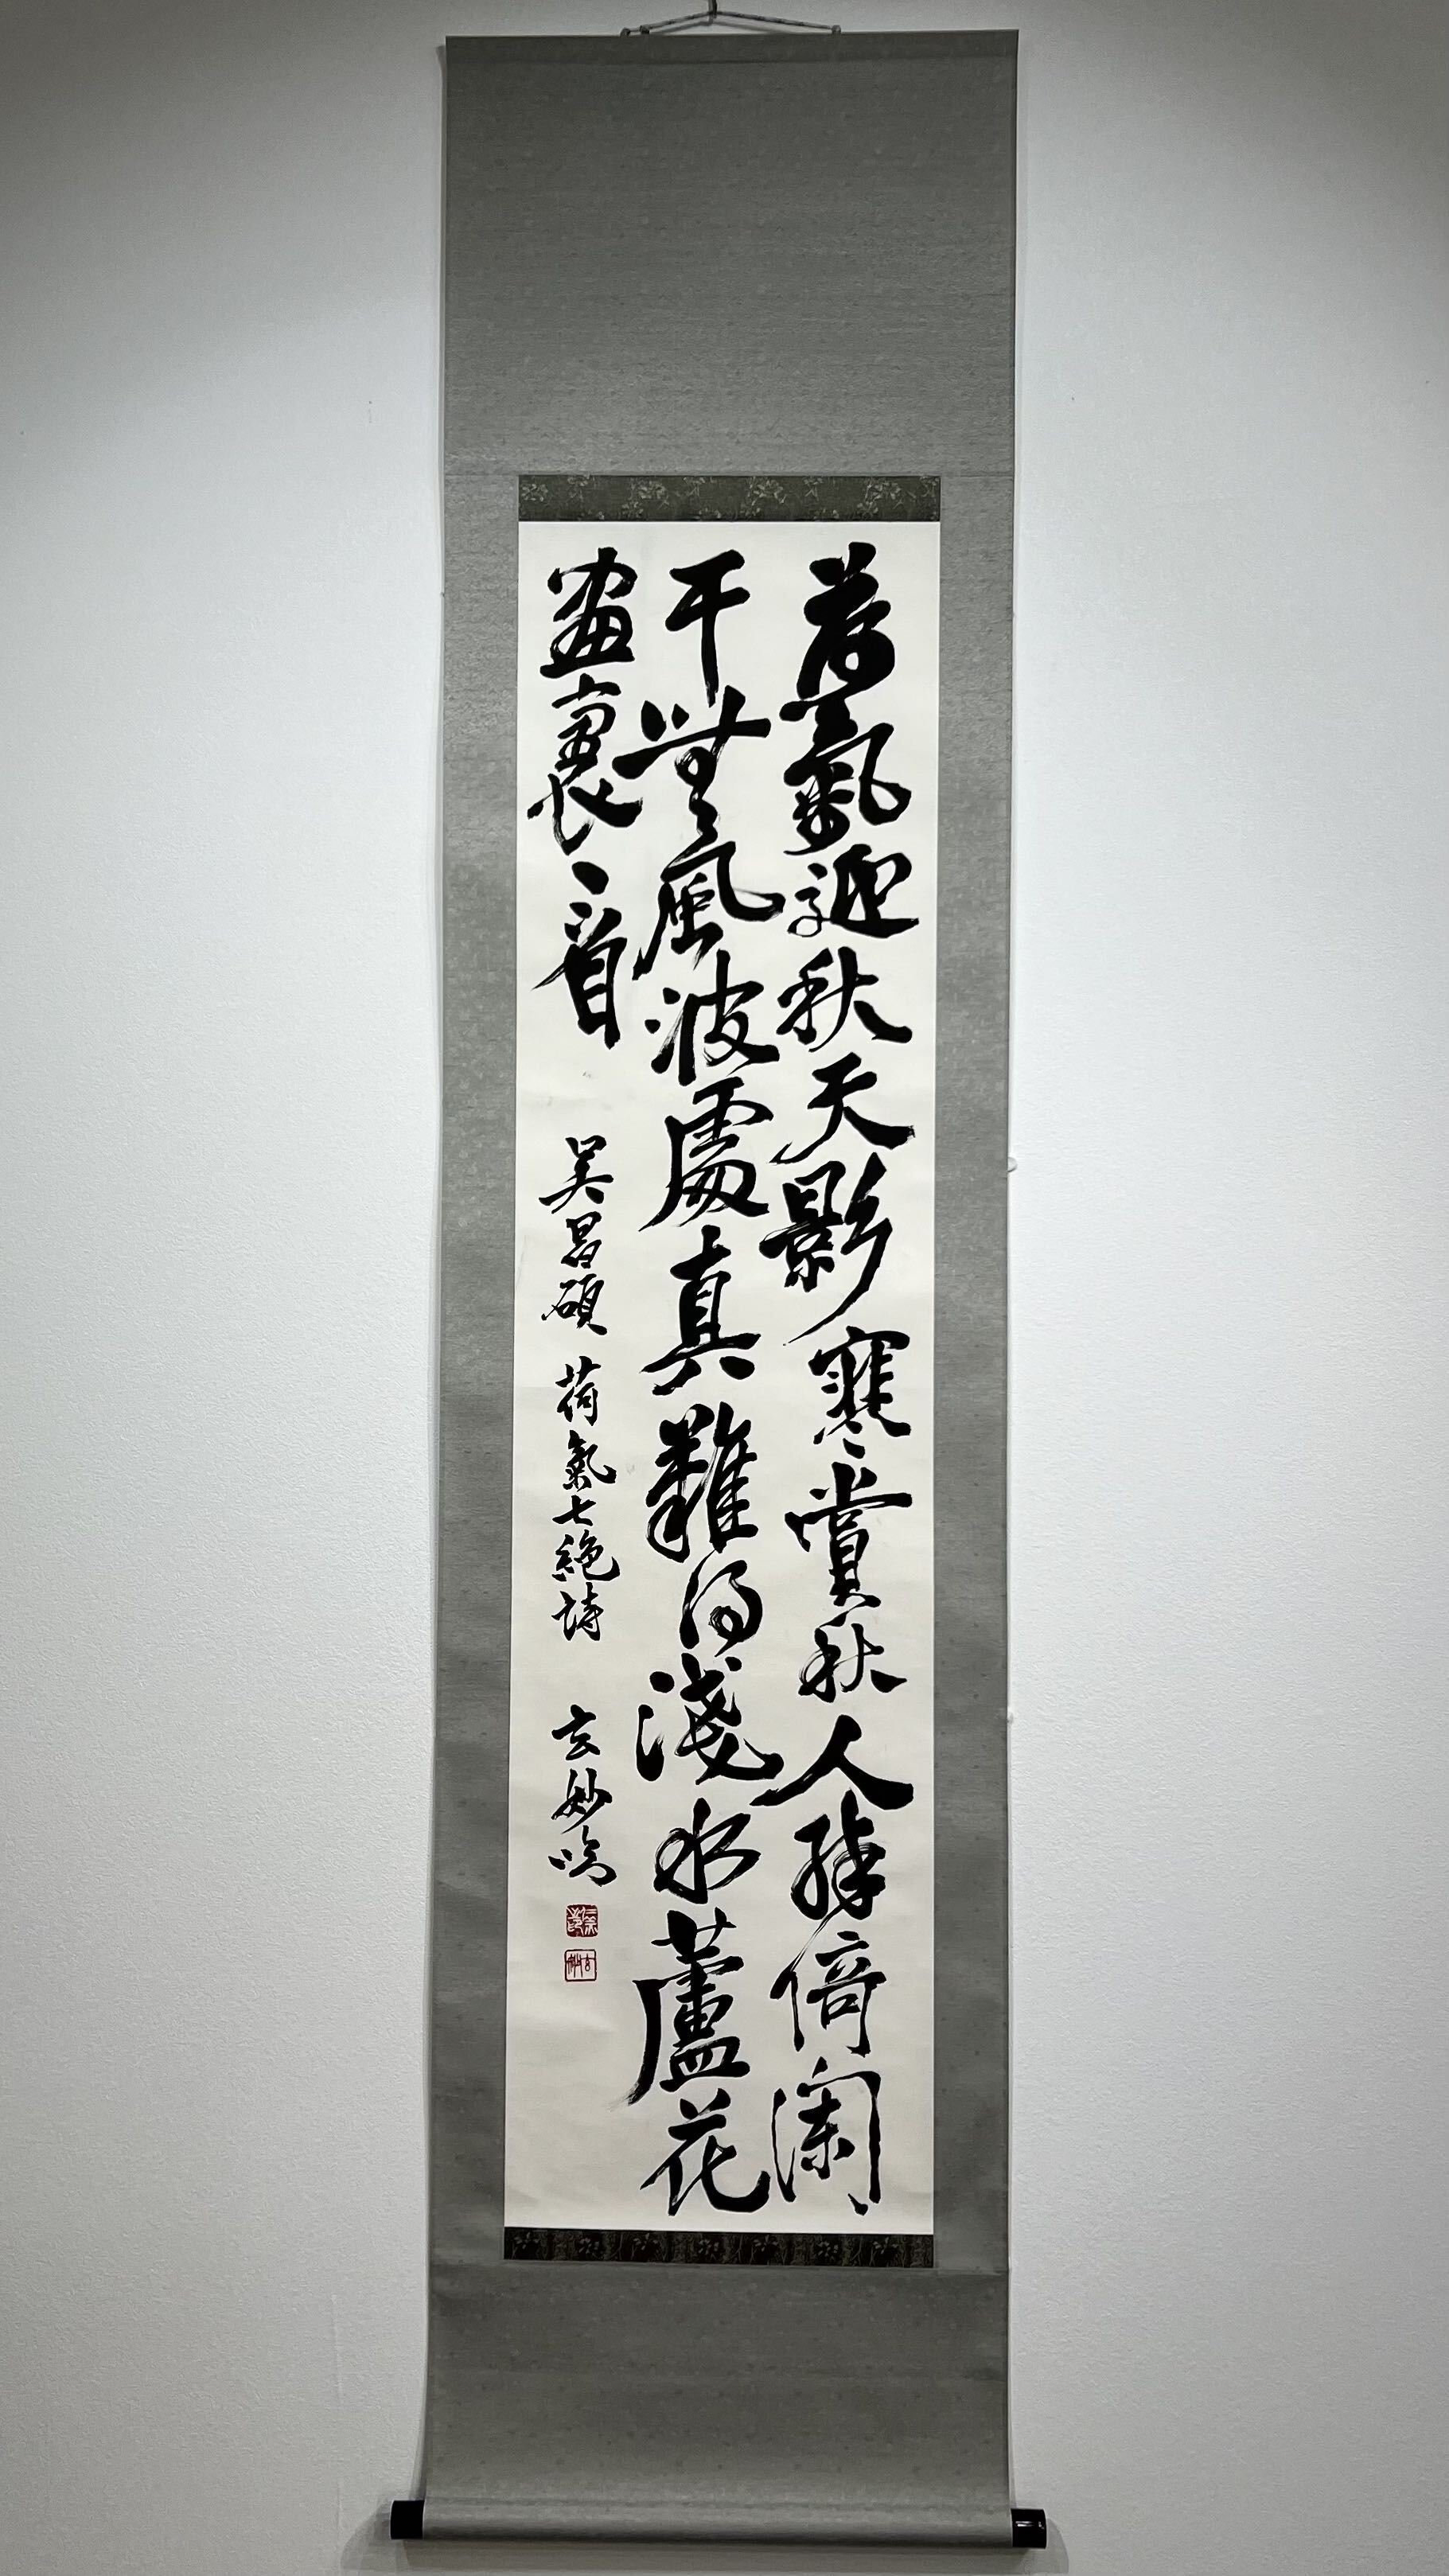 荷氣迎秋天影寒賞秋人倚闌
干無風波處真難得淺水蘆花
畫裏看
吳昌碩 荷氣七絶詩 玄妙